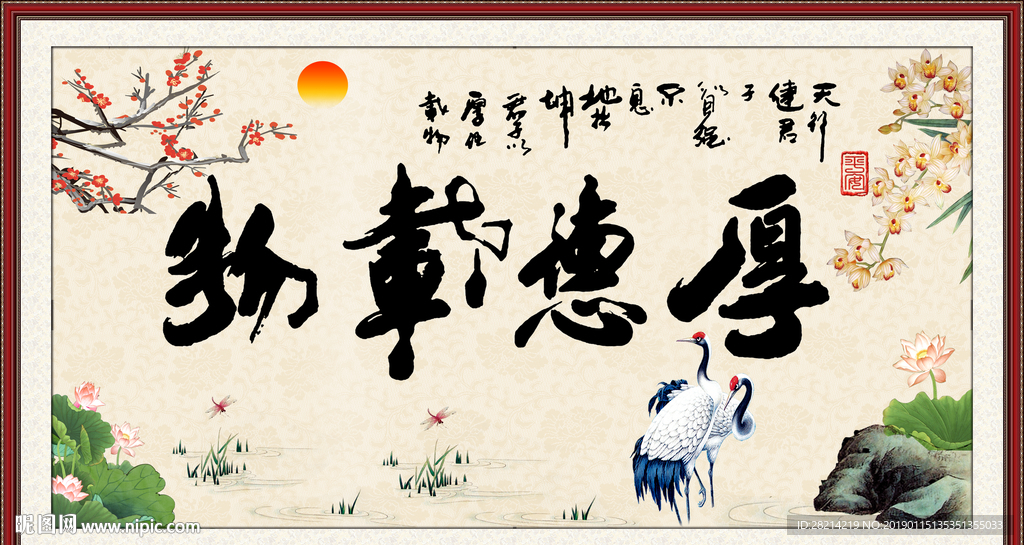 天行
健君
子
以自强
不
息
地势
坤
君子以
厚德
載物
平安
厚德載物
昵图网 www.nipic.com
ID:28214219 NO:20190115135351355033